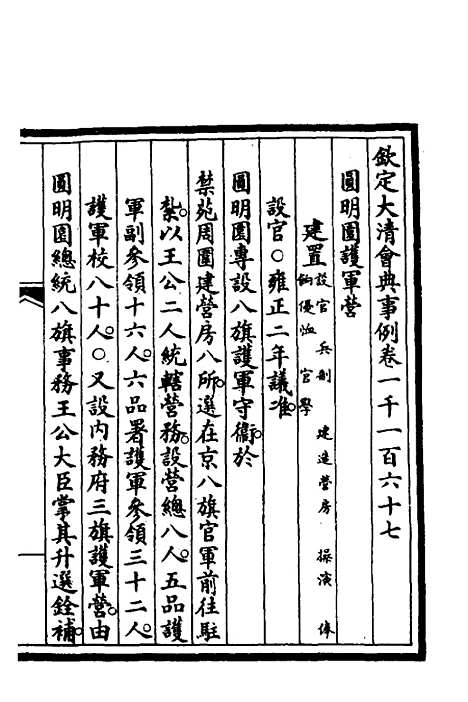 欽定大清會典事例卷一千一百六十七
圓明園護軍營
建置 設官 兵制 建造營房 操演 俸餉 優恤 官學
設官○雍正二年議准。
圓明園專設八旗護軍守衞。於
禁苑周圍建營房八所。選在京八旗官軍前往駐
紮。以王公二人統轄營務。設營總八人。五品護
軍副參領十六人。六品署護軍參領三十二人。
護軍校八十人。○又設內務府三旗護軍營。由
圓明園總統八旗事務王公大臣掌其升選銓補。